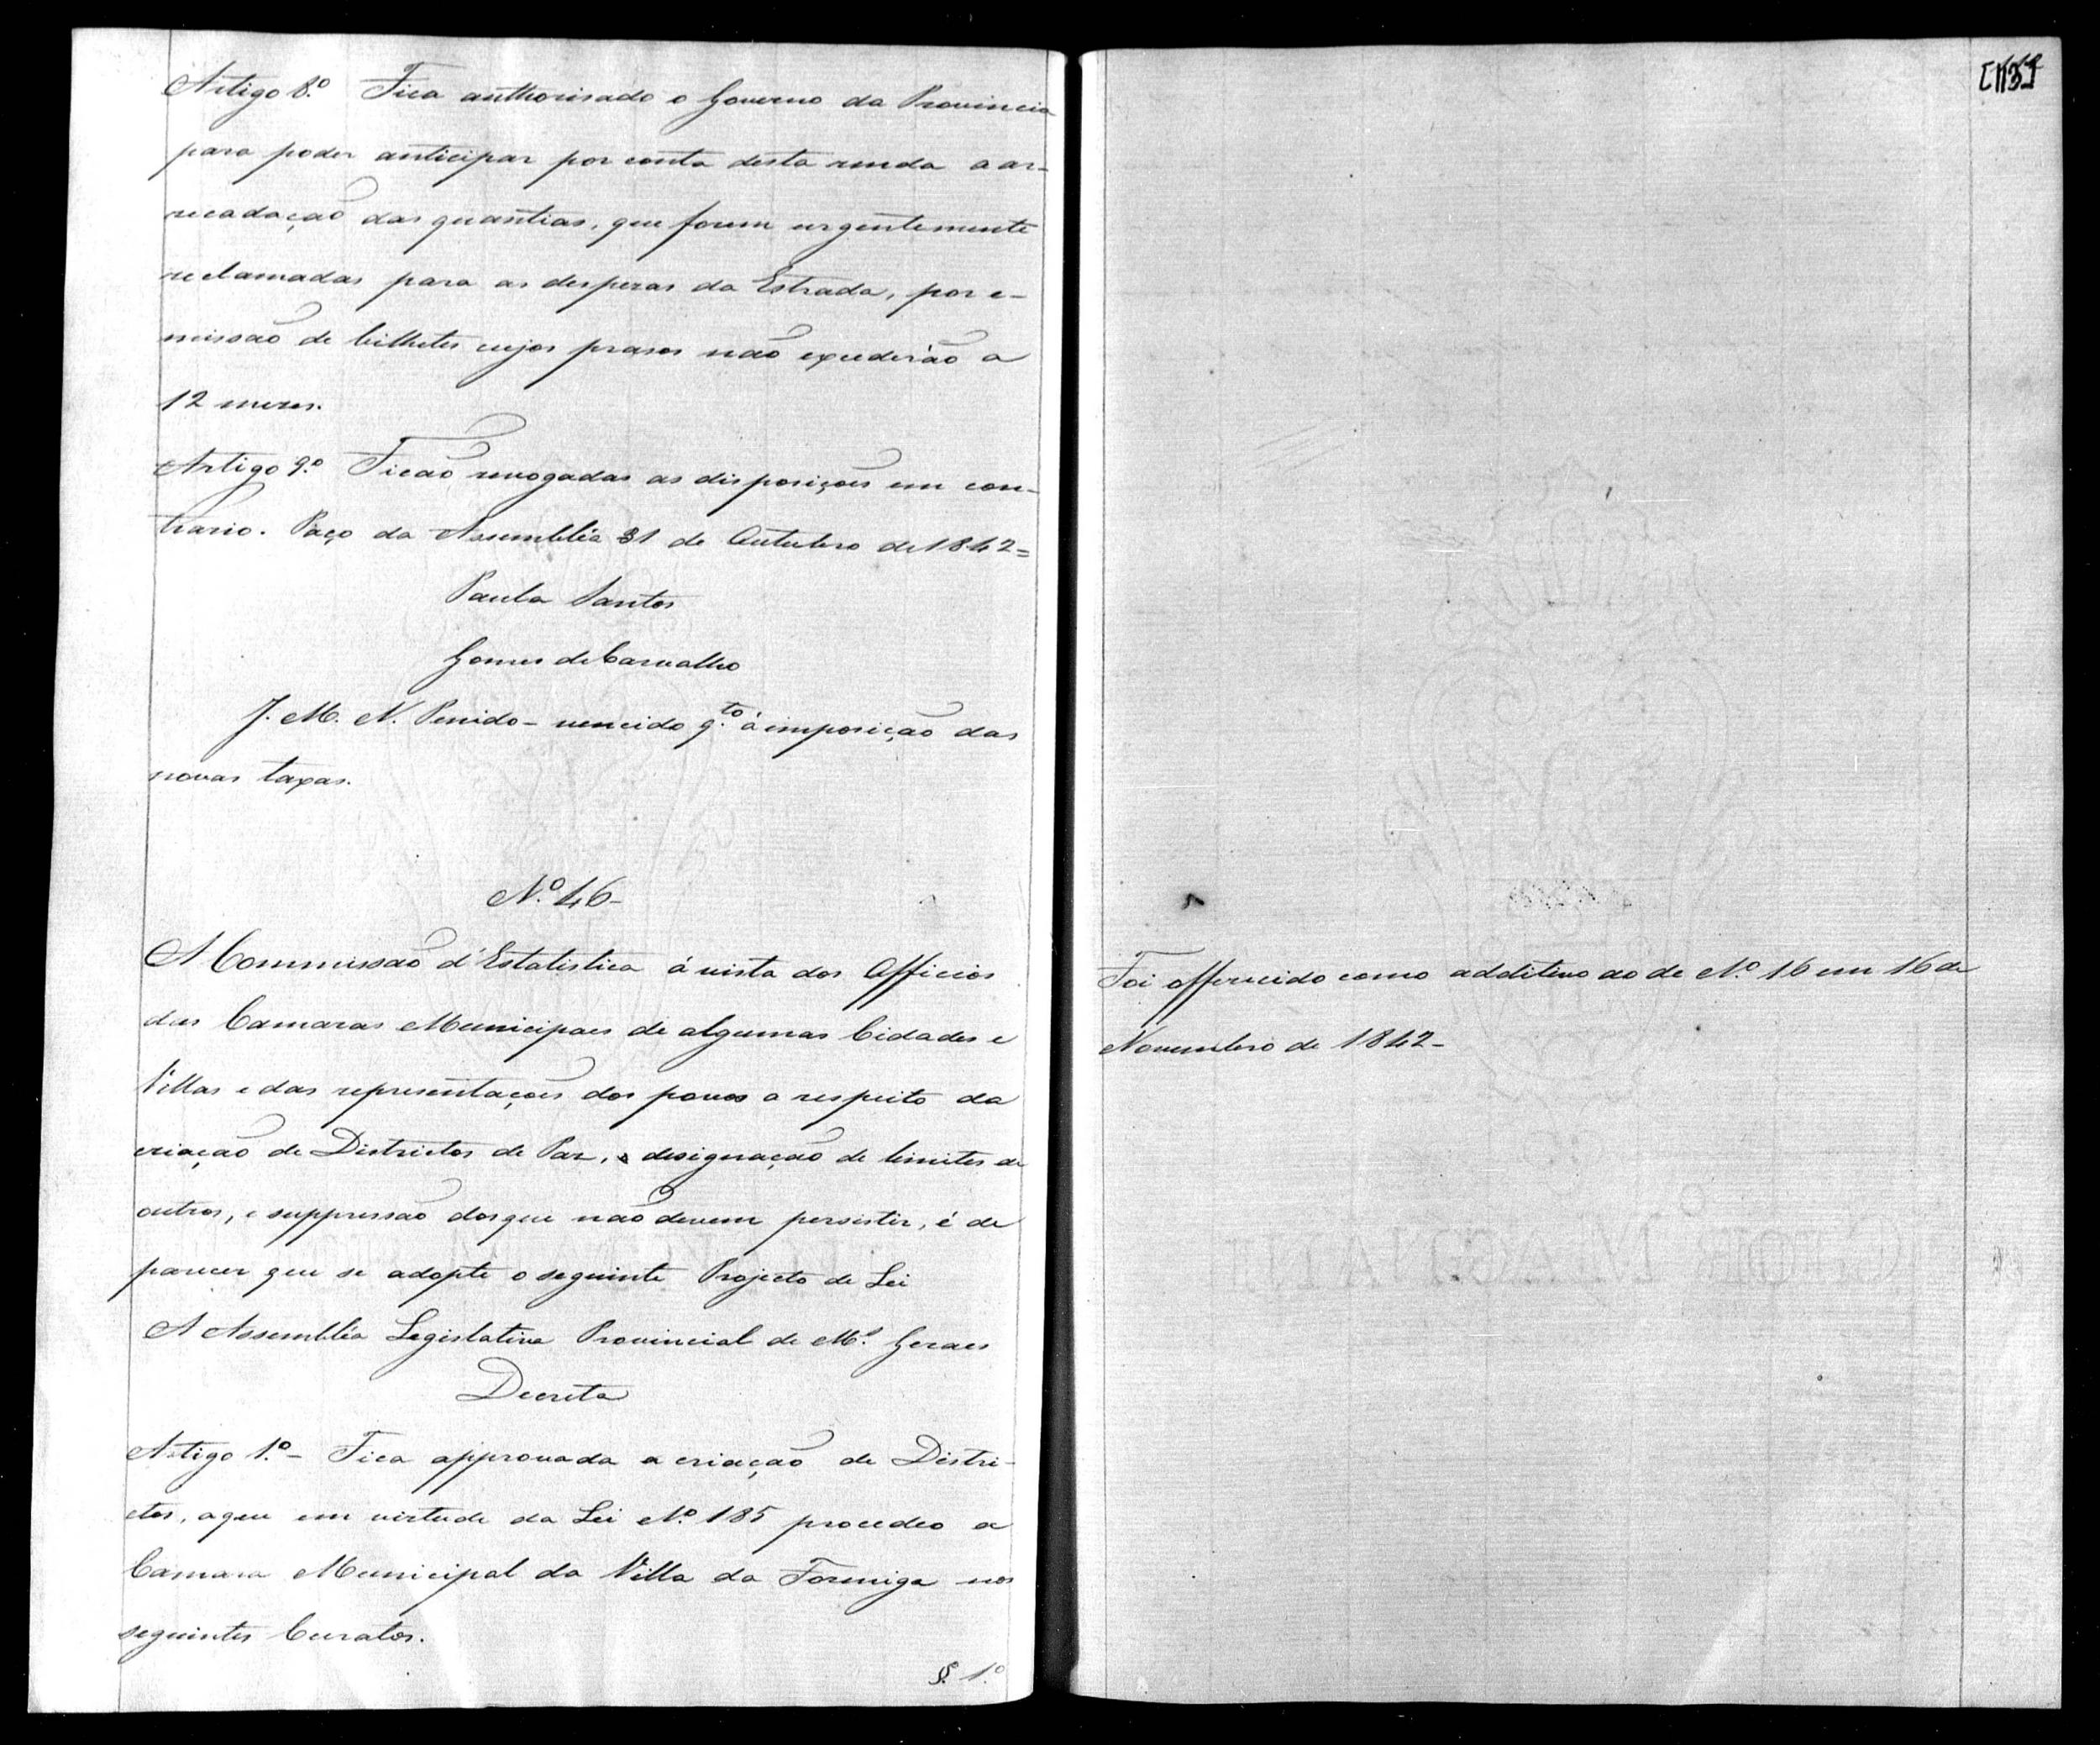 Artigo 8.º Fica authorisado o Governo da Provincia
para poder anticipar por conta desta renda a ar-
recadação das quantias, que forem urgentemente
reclamadas para as despezas da Estrada, por e-
missão de bilhetes cujos prasos não excederão a
12 mezes.
Artigo 9.º Ficão revogadas as disposições em con-
trario. Paço da Assembléa 31 de Outubro de 1842=
Paula Santos
Gomes de Carvalho
J. M. N. Penido - vencido q.to á imposição das
novas taxas.
N.º 46-
A Commissão d'Estatistica á vista dos Officios
das Camaras Municipaes de algumas Cidades e
Villas e das representações dos povos a respeito da
criação de Districtos de Paz, designação de limites de
outros, e suppressão dos que não devem persistir, é de
parecer que se adopte o seguinte Projecto de Lei
A Assembléa Legislativa Provincial de M.s Geraes
Decreta
Artigo 1.º - Fica approvada a criação de Distri-
ctos, a que em virtude da Lei N.º 185 procedeo a
Camara Municipal da Villa da Formiga nos
seguintes Curatos.
§. 1.º
Foi offerecido como additivo ao de N.º 16 em 16 de
Novembro de 1842-
GIOR MAGNANI